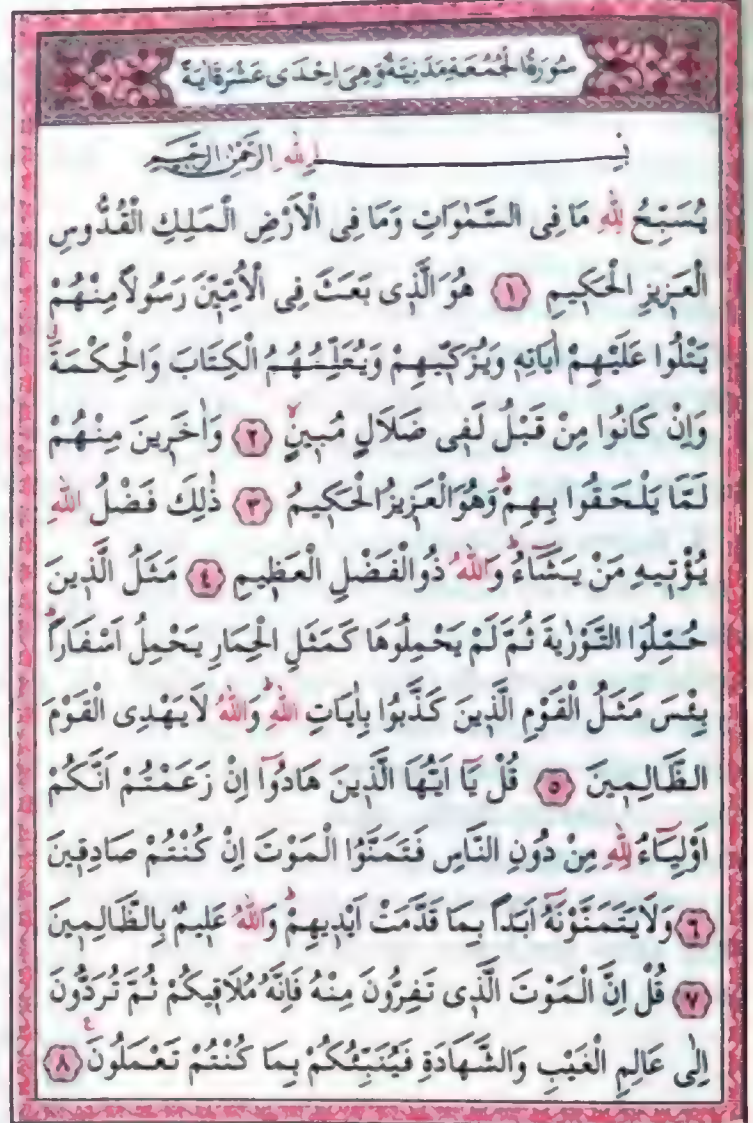 سُورَةُ الْجُمُعَةِ مَدَنِيَّةٌ وَهِيَ اِحْدٰى عَشْرَةَ اٰيَةً
بِسْــــــــــــمِ اللّٰهِ الرَّحْمٰنِ الرَّحِيمِ
يُسَبِّحُ لِلّٰهِ مَا فِى السَّمٰوَاتِ وَمَا فِى الْاَرْضِ الْمَلِكِ الْقُدُّوسِ
الْعَزِيزِ الْحَكِيمِ ﴿١﴾ هُوَ الَّذِى بَعَثَ فِى الْاُمِّيّٖنَ رَسُولاً مِنْهُمْ
يَتْلُوا عَلَيْهِمْ اٰيَاتِهٖ وَيُزَكّٖيهِمْ وَيُعَلِّمُهُمُ الْكِتَابَ وَالْحِكْمَةَۗ
وَاِنْ كَانُوا مِنْ قَبْلُ لَفٖى ضَلَالٍ مُبٖينٍۙ ﴿٢﴾ وَاٰخَرٖينَ مِنْهُمْ
لَمَّا يَلْحَقُوا بِهِمْۜ وَهُوَ الْعَزٖيزُ الْحَكٖيمُ ﴿٣﴾ ذٰلِكَ فَضْلُ اللّٰهِ
يُؤْتٖيهِ مَنْ يَشَٓاءُۜ وَاللّٰهُ ذُوالْفَضْلِ الْعَظٖيمِ ﴿٤﴾ مَثَلُ الَّذٖينَ
حُمِّلُوا التَّوْرٰيةَ ثُمَّ لَمْ يَحْمِلُوهَا كَمَثَلِ الْحِمَارِ يَحْمِلُ اَسْفَاراًۜ
بِئْسَ مَثَلُ الْقَوْمِ الَّذٖينَ كَذَّبُوا بِاٰيَاتِ اللّٰهِۜ وَاللّٰهُ لَا يَهْدِى الْقَوْمَ
الظَّالِمٖينَ ﴿٥﴾ قُلْ يَٓا اَيُّهَا الَّذٖينَ هَادُٓوا اِنْ زَعَمْتُمْ اَنَّكُمْ
اَوْلِيَٓاءُ لِلّٰهِ مِنْ دُونِ النَّاسِ فَتَمَنَّوُا الْمَوْتَ اِنْ كُنْتُمْ صَادِقٖينَ
﴿٦﴾ وَلَا يَتَمَنَّوْنَهُٓ اَبَداً بِمَا قَدَّمَتْ اَيْدٖيهِمْۜ وَاللّٰهُ عَلٖيمٌ بِالظَّالِمٖينَ
﴿٧﴾ قُلْ اِنَّ الْمَوْتَ الَّذٖى تَفِرُّونَ مِنْهُ فَاِنَّهُ مُلَاقٖيكُمْ ثُمَّ تُرَدُّونَ
اِلٰى عَالِمِ الْغَيْبِ وَالشَّهَادَةِ فَيُنَبِّئُكُمْ بِمَا كُنْتُمْ تَعْمَلُونَ ﴿٨﴾